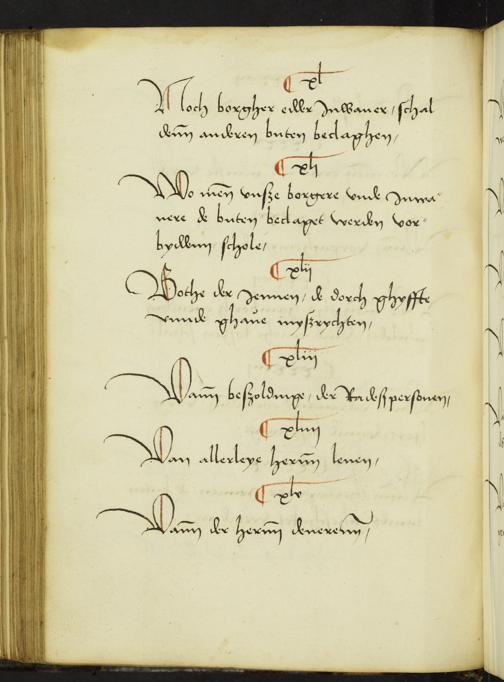 xl
Noch borgher edder Inwaner, schal
denn anderen buten beclaghen,
xli
Wo men vnsze borgere vnde Inwa-
nere de buten beclaget werden vor-
bydden schole,
xlii
Bothe der Jennen, de dorch ghyffte
vnnde ghaue myszrychten,
xliii
Vann beszoldinge, der Radespersonen,
xliiii
Van allerleye herenn lenen,
xlv
Vann der herenn denerenn,